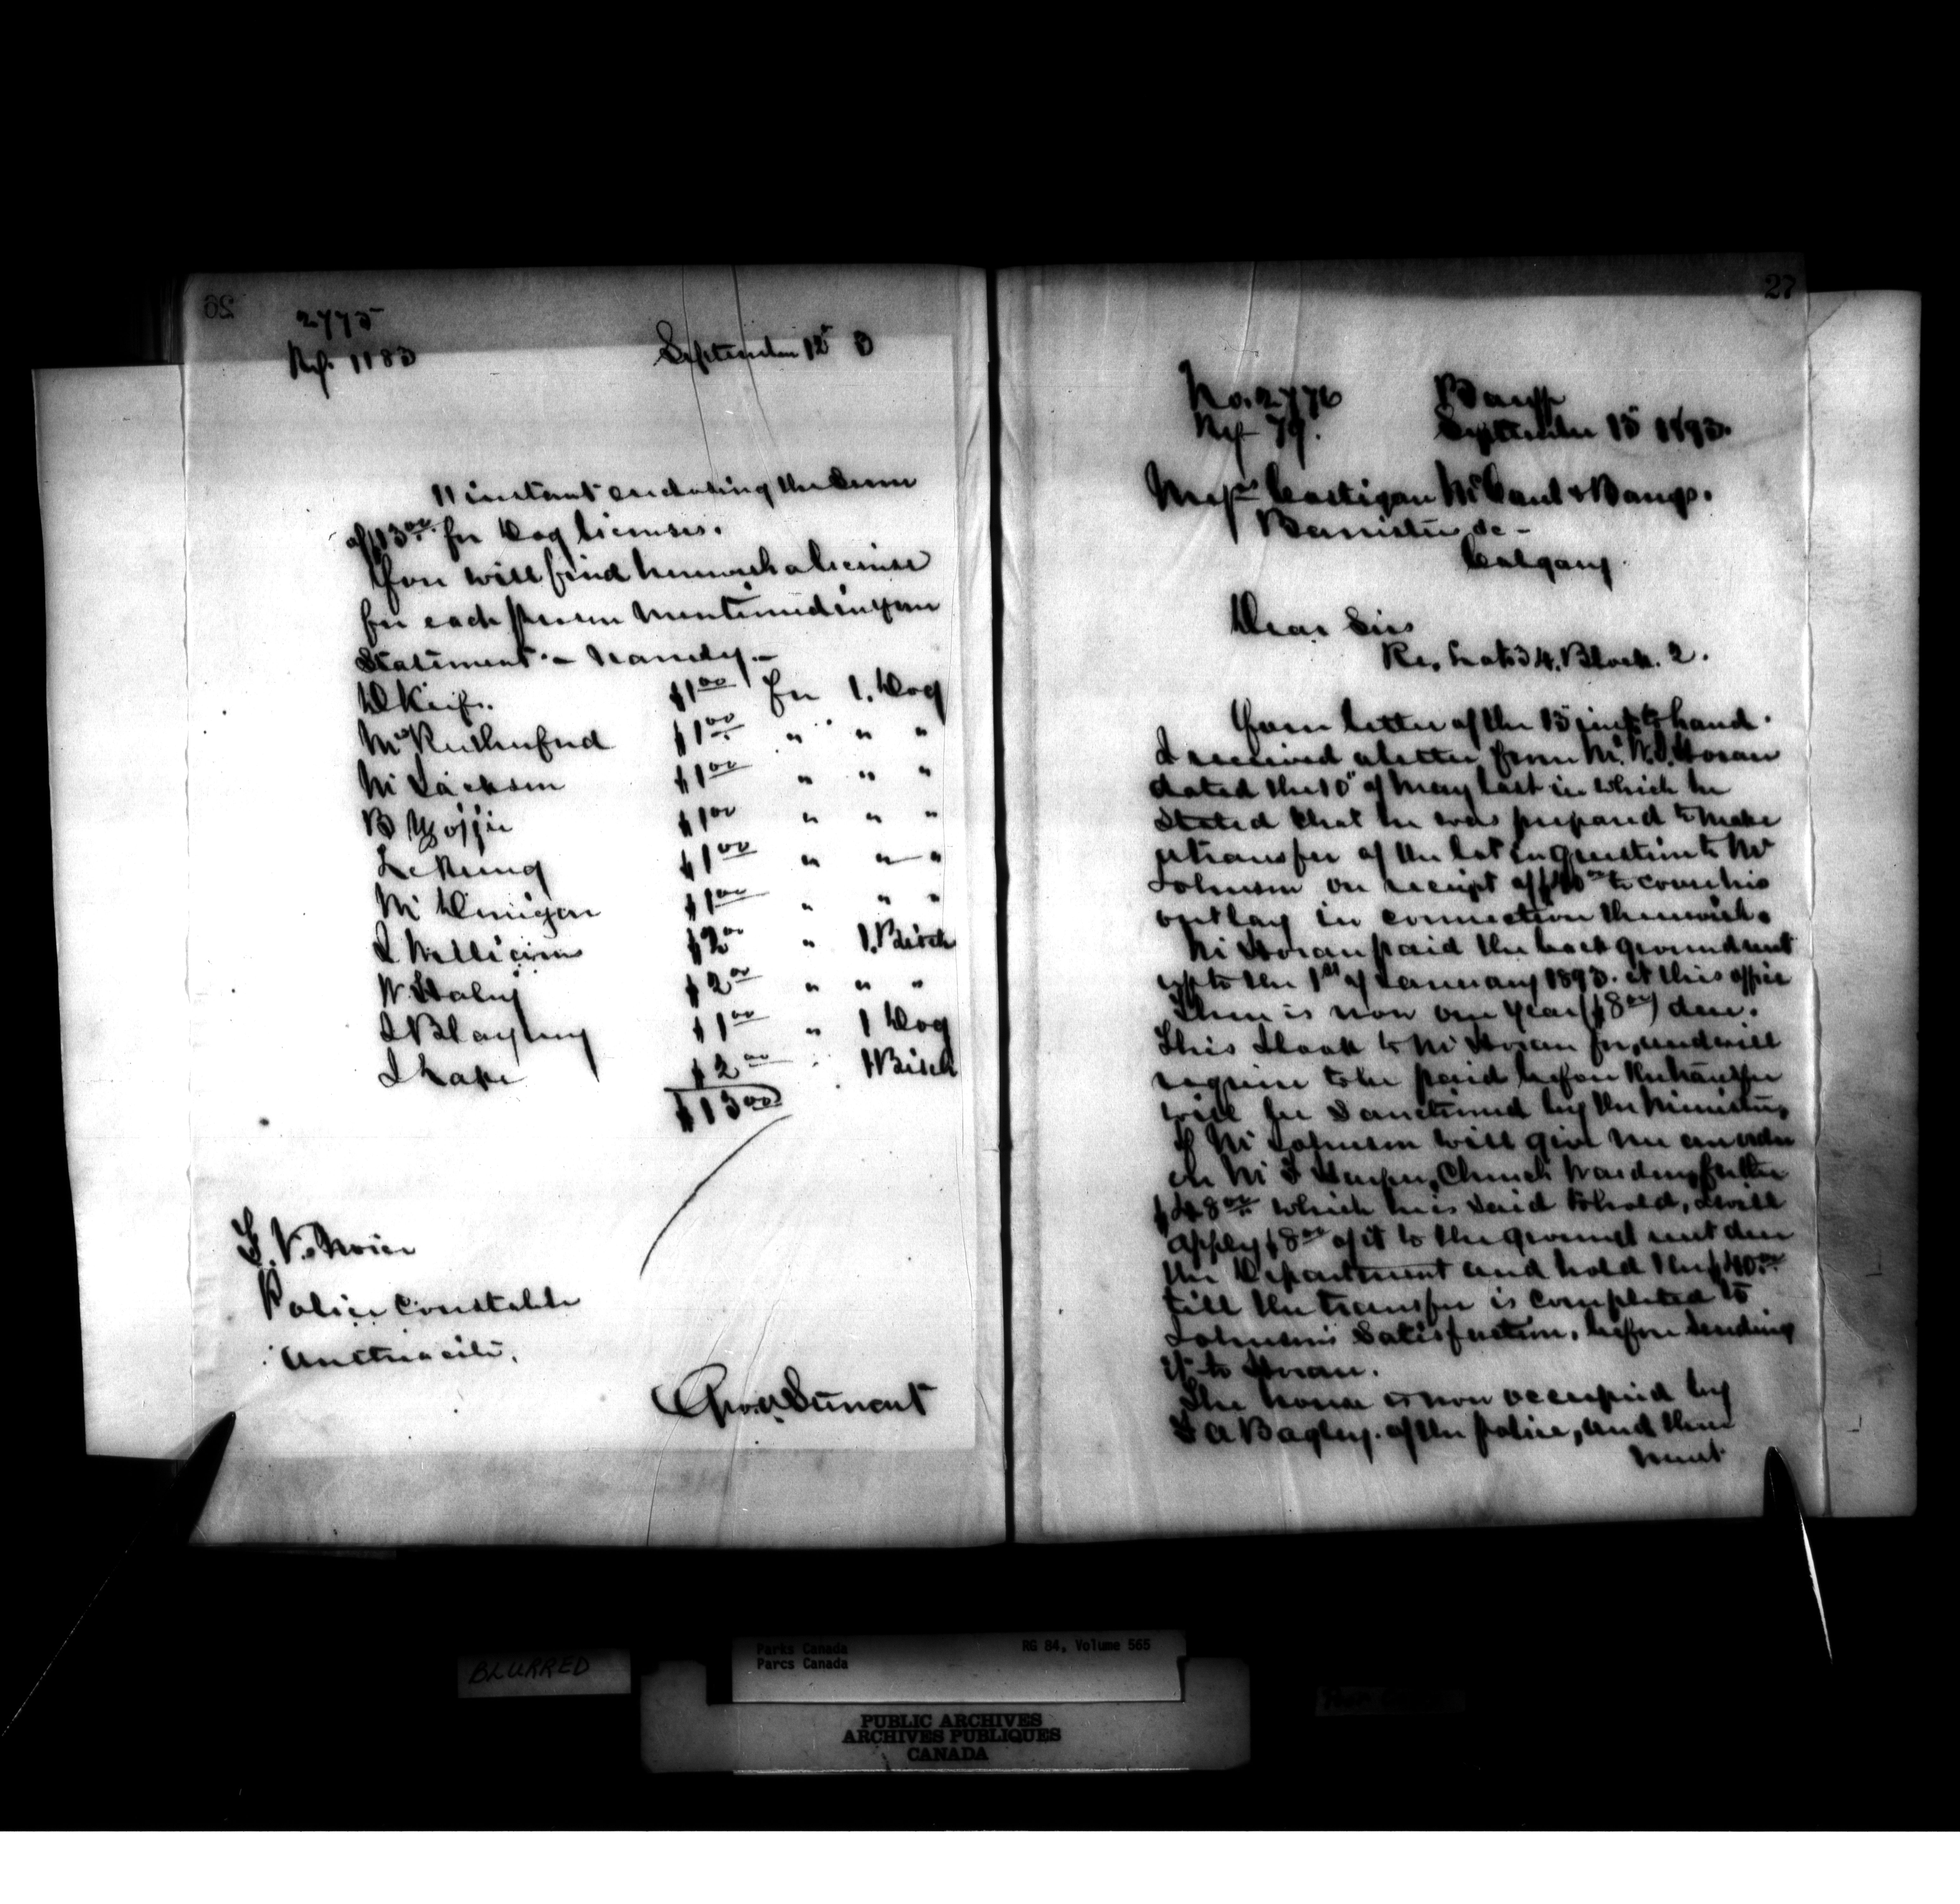 26
2775
Ref. 1183
September 15 3
11 instant enclosing the sum
of $13.00 for Dog licenses.
You will find herewith a license
for each person mentioned in your
Statement. - Namely. -
D Keife. $1 00 for 1. Dog
Mc Rutherford $1 00 " " "
M Jackson $1 00 " " "
B $1 00 " " "
$1 00 " " "
M $1 00 " " "
$2 00 " 1. Bitch
W. Haley $2 00 " " "
$1 00 " 1 Dog
$2 00 1 Bitch
$13 00
Police Constable
Anthracite.
Geo. A Stewart
27
No. 2776 Banff
Ref 79. September 15 1893.
Messrs Costigan McCaul & Bangs.
Barristers &c -
Calgary
Dear Sirs
Re. Lot 34. Block. 2.
Your letter of the 13 inst to hand.
I received a letter from Mr. W. J. Horan
dated the 10" of May last in which he
stated that he was prepared to make
a transfer of the lot in question to Mr
Johnson on receipt of $40 00 to cover his
outlay in connection therewith.
Mr Horan paid the back ground rent
up to the 1st of January 1893. at this office
There is now one year ($8 00) due.
This I look to Mr Horan for, and will
require to be paid before the transfer
will be sanctioned by the Minister,
If Mr Johnson will give me an order
on Mr Harper, Church Warden, for the
$48 00 which he is said to hold, I will
apply $8 00 of it to the ground rent due
the Department and hold the $40.00
till the transfer is completed to
Johnson's satisfaction, before sending
it to Horan.
The house is now occupied by
Bagley. of the police, and there
must
BLURRED
Parks Canada RG 84, Volume 565
Parcs Canada
PUBLIC ARCHIVES
ARCHIVES PUBLIQUES
CANADA